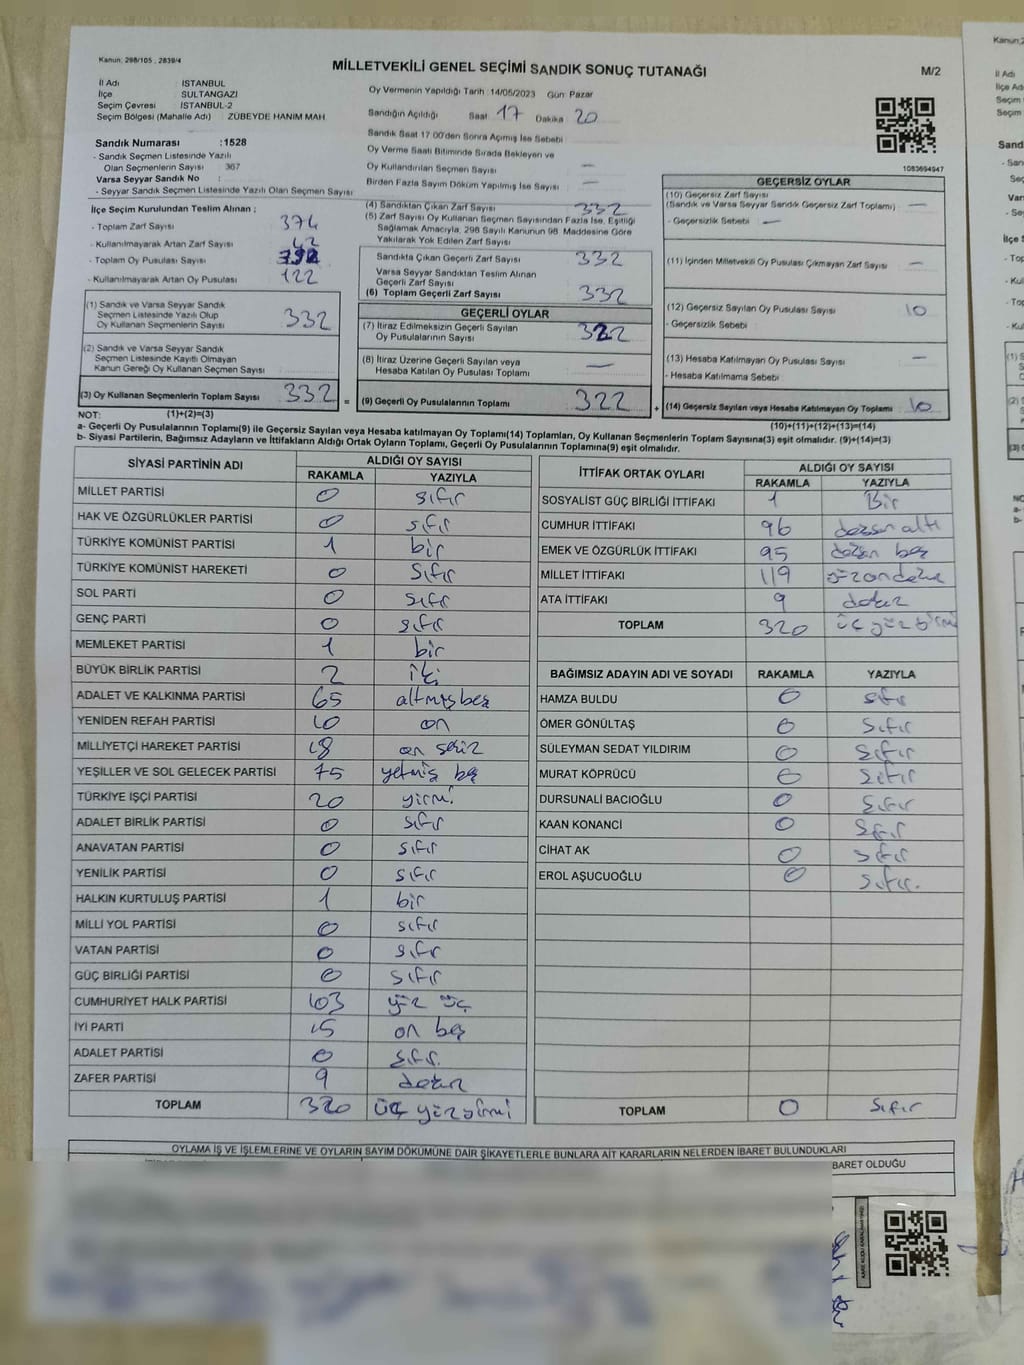 Kanun: 298/105 , 2839/4
MİLLETVEKİLİ GENEL SEÇİMİ SANDIK SONUÇ TUTANAĞI
M/2
İl Adı : İSTANBUL
İlçe : SULTANGAZİ
Seçim Çevresi : İSTANBUL-2
Seçim Bölgesi (Mahalle Adı) : ZÜBEYDE HANIM MAH.
Oy Vermenin Yapıldığı Tarih :14/05/2023 Gün: Pazar
Sandığın Açıldığı Saat 17 Dakika 20
Sandık Saat 17:00'den Sonra Açılmış İse Sebebi :
Oy Verme Saati Bitiminde Sırada Bekleyen ve
Oy Kullandırılan Seçmen Sayısı : —
Birden Fazla Sayım Döküm Yapılmış İse Sayısı : —
1083694947
Sandık Numarası :1528
- Sandık Seçmen Listesinde Yazılı
Olan Seçmenlerin Sayısı : 367
Varsa Seyyar Sandık No :
- Seyyar Sandık Seçmen Listesinde Yazılı Olan Seçmen Sayısı :
İlçe Seçim Kurulundan Teslim Alınan ;
- Toplam Zarf Sayısı : 374
- Kullanılmayarak Artan Zarf Sayısı : 42
- Toplam Oy Pusulası Sayısı :
- Kullanılmayarak Artan Oy Pusulası : 122
(1) Sandık ve Varsa Seyyar Sandık
Seçmen Listesinde Yazılı Olup
Oy Kullanan Seçmenlerin Sayısı : 332
(2) Sandık ve Varsa Seyyar Sandık
Seçmen Listesinde Kayıtlı Olmayan
Kanun Gereği Oy Kullanan Seçmen Sayısı :
(3) Oy Kullanan Seçmenlerin Toplam Sayısı : 332 =
(4) Sandıktan Çıkan Zarf Sayısı : 332
(5) Zarf Sayısı Oy Kullanan Seçmen Sayısından Fazla İse, Eşitliği
Sağlamak Amacıyla, 298 Sayılı Kanunun 98. Maddesine Göre
Yakılarak Yok Edilen Zarf Sayısı :
Sandıkta Çıkan Geçerli Zarf Sayısı : 332
Varsa Seyyar Sandıktan Teslim Alınan
Geçerli Zarf Sayısı :
(6) Toplam Geçerli Zarf Sayısı : 332
GEÇERLİ OYLAR
(7) İtiraz Edilmeksizin Geçerli Sayılan
Oy Pusulalarının Sayısı : 322
(8) İtiraz Üzerine Geçerli Sayılan veya
Hesaba Katılan Oy Pusulası Toplamı : —
(9) Geçerli Oy Pusulalarının Toplamı : 322 +
GEÇERSİZ OYLAR
(10) Geçersiz Zarf Sayısı
(Sandık ve Varsa Seyyar Sandık Geçersiz Zarf Toplamı) : —
- Geçersizlik Sebebi : —
(11) İçinden Milletvekili Oy Pusulası Çıkmayan Zarf Sayısı : —
(12) Geçersiz Sayılan Oy Pusulası Sayısı : 10
- Geçersizlik Sebebi :
(13) Hesaba Katılmayan Oy Pusulası Sayısı : —
- Hesaba Katılmama Sebebi :
(14) Geçersiz Sayılan veya Hesaba Katılmayan Oy Toplamı : 10
NOT: (1)+(2)=(3)
(10)+(11)+(12)+(13)=(14)
a- Geçerli Oy Pusulalarının Toplamı(9) ile Geçersiz Sayılan veya Hesaba katılmayan Oy Toplamı(14) Toplamları, Oy Kullanan Seçmenlerin Toplam Sayısına(3) eşit olmalıdır. (9)+(14)=(3)
b- Siyasi Partilerin, Bağımsız Adayların ve İttifakların Aldığı Ortak Oyların Toplamı, Geçerli Oy Pusulalarının Toplamına(9) eşit olmalıdır.
SİYASİ PARTİNİN ADI ALDIĞI OY SAYISI
RAKAMLA YAZIYLA
MİLLET PARTİSİ 0 sıfır
HAK VE ÖZGÜRLÜKLER PARTİSİ 0 sıfır
TÜRKİYE KOMÜNİST PARTİSİ 1 bir
TÜRKİYE KOMÜNİST HAREKETİ 0 sıfır
SOL PARTİ 0 sıfır
GENÇ PARTİ 0 sıfır
MEMLEKET PARTİSİ 1 bir
BÜYÜK BİRLİK PARTİSİ 2 iki
ADALET VE KALKINMA PARTİSİ 65 altmış beş
YENİDEN REFAH PARTİSİ 10 on
MİLLİYETÇİ HAREKET PARTİSİ 18 on sekiz
YEŞİLLER VE SOL GELECEK PARTİSİ 75 yetmiş beş
TÜRKİYE İŞÇİ PARTİSİ 20 yirmi
ADALET BİRLİK PARTİSİ 0 sıfır
ANAVATAN PARTİSİ 0 sıfır
YENİLİK PARTİSİ 0 sıfır
HALKIN KURTULUŞ PARTİSİ 1 bir
MİLLİ YOL PARTİSİ 0 sıfır
VATAN PARTİSİ 0 sıfır
GÜÇ BİRLİĞİ PARTİSİ 0 sıfır
CUMHURİYET HALK PARTİSİ 103 yüz üç
İYİ PARTİ 15 on beş
ADALET PARTİSİ 0 sıfır
ZAFER PARTİSİ 9 dokuz
TOPLAM 320 üç yüz yirmi
İTTİFAK ORTAK OYLARI ALDIĞI OY SAYISI
RAKAMLA YAZIYLA
SOSYALİST GÜÇ BİRLİĞİ İTTİFAKI 1 Bir
CUMHUR İTTİFAKI 96 doksan altı
EMEK VE ÖZGÜRLÜK İTTİFAKI 95 doksan beş
MİLLET İTTİFAKI 119 yüzondokuz
ATA İTTİFAKI 9 dokuz
TOPLAM 320 üç yüz yirmi
BAĞIMSIZ ADAYIN ADI VE SOYADI RAKAMLA YAZIYLA
HAMZA BULDU 0 sıfır
ÖMER GÖNÜLTAŞ 0 sıfır
SÜLEYMAN SEDAT YILDIRIM 0 sıfır
MURAT KÖPRÜCÜ 0 sıfır
DURSUNALİ BACIOĞLU 0 sıfır
KAAN KONANCİ 0 sıfır
CİHAT AK 0 sıfır
EROL AŞUCUOĞLU 0 sıfır.
TOPLAM 0 sıfır
OYLAMA İŞ VE İŞLEMLERİNE VE OYLARIN SAYIM DÖKÜMÜNE DAİR ŞİKAYETLERLE BUNLARA AİT KARARLARIN NELERDEN İBARET BULUNDUKLARI
BARET OLDUĞU